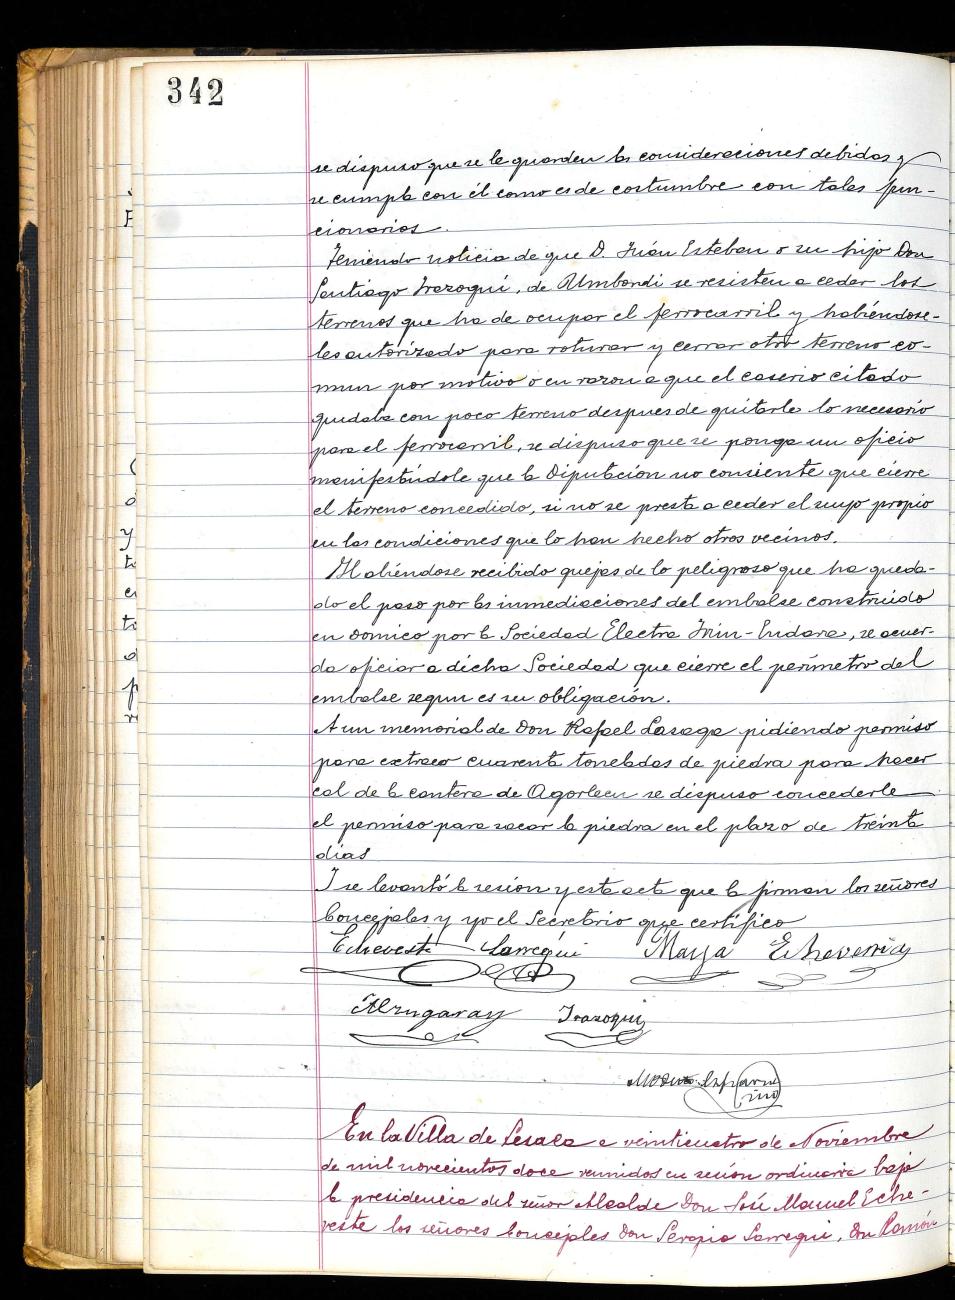 342
se dispuso que se le guarden las consideraciones debidas y
se cumpla con él como es de costumbre con tales fun-
cionarios.
Teniendo noticia de que D. Juán Esteban o su hijo Don
Santiago Irazoqui, de Umbondi se resisten a ceder los
terrenos que ha de ocupar el ferrocarril y habiéndose-
les autorizado para roturar y cerrar otro terreno co-
mun por motivo o en razon a que el caserio citado
quedaba con poco terreno despues de quitarle lo necesario
para el ferrocarril, se dispuso que se ponga un oficio
manifestándole que la Diputación no consiente que cierre
el terreno concedido, si no se presta a ceder el suyo propio
en las condiciones que lo han hecho otros vecinos.
Habiéndose recibido quejas de lo peligroso que ha queda-
do el paso por las inmediaciones del embalse construido
en Domico por la Sociedad Electra Irún-Endara, se acuer-
da oficiar a dicha Sociedad que cierre el perímetro del
embalse segun es su obligación.
A un memorial de Don Rafael Lasaga pidiendo permiso
para extraer cuarenta toneladas de piedra para hacer
cal de la cantera de Agorlecu se dispuso concederle
el permiso para sacar la piedra en el plazo de treinta
dias
I se levantó la sesión y esta acta que la firman los señores
Concejales y yo el Secretario que certifico
Echeveste Larregui Maya Echeverria
Alzugaray Irazoqui
En la Villa de Lesaca a veinticuatro de Noviembre
de mil novecientos doce reunidos en sesión ordinaria bajo
la presidencia del señor Alcalde Don José Manuel Eche-
veste los señores Concejales Don Sergio Larregui, Don Ramón